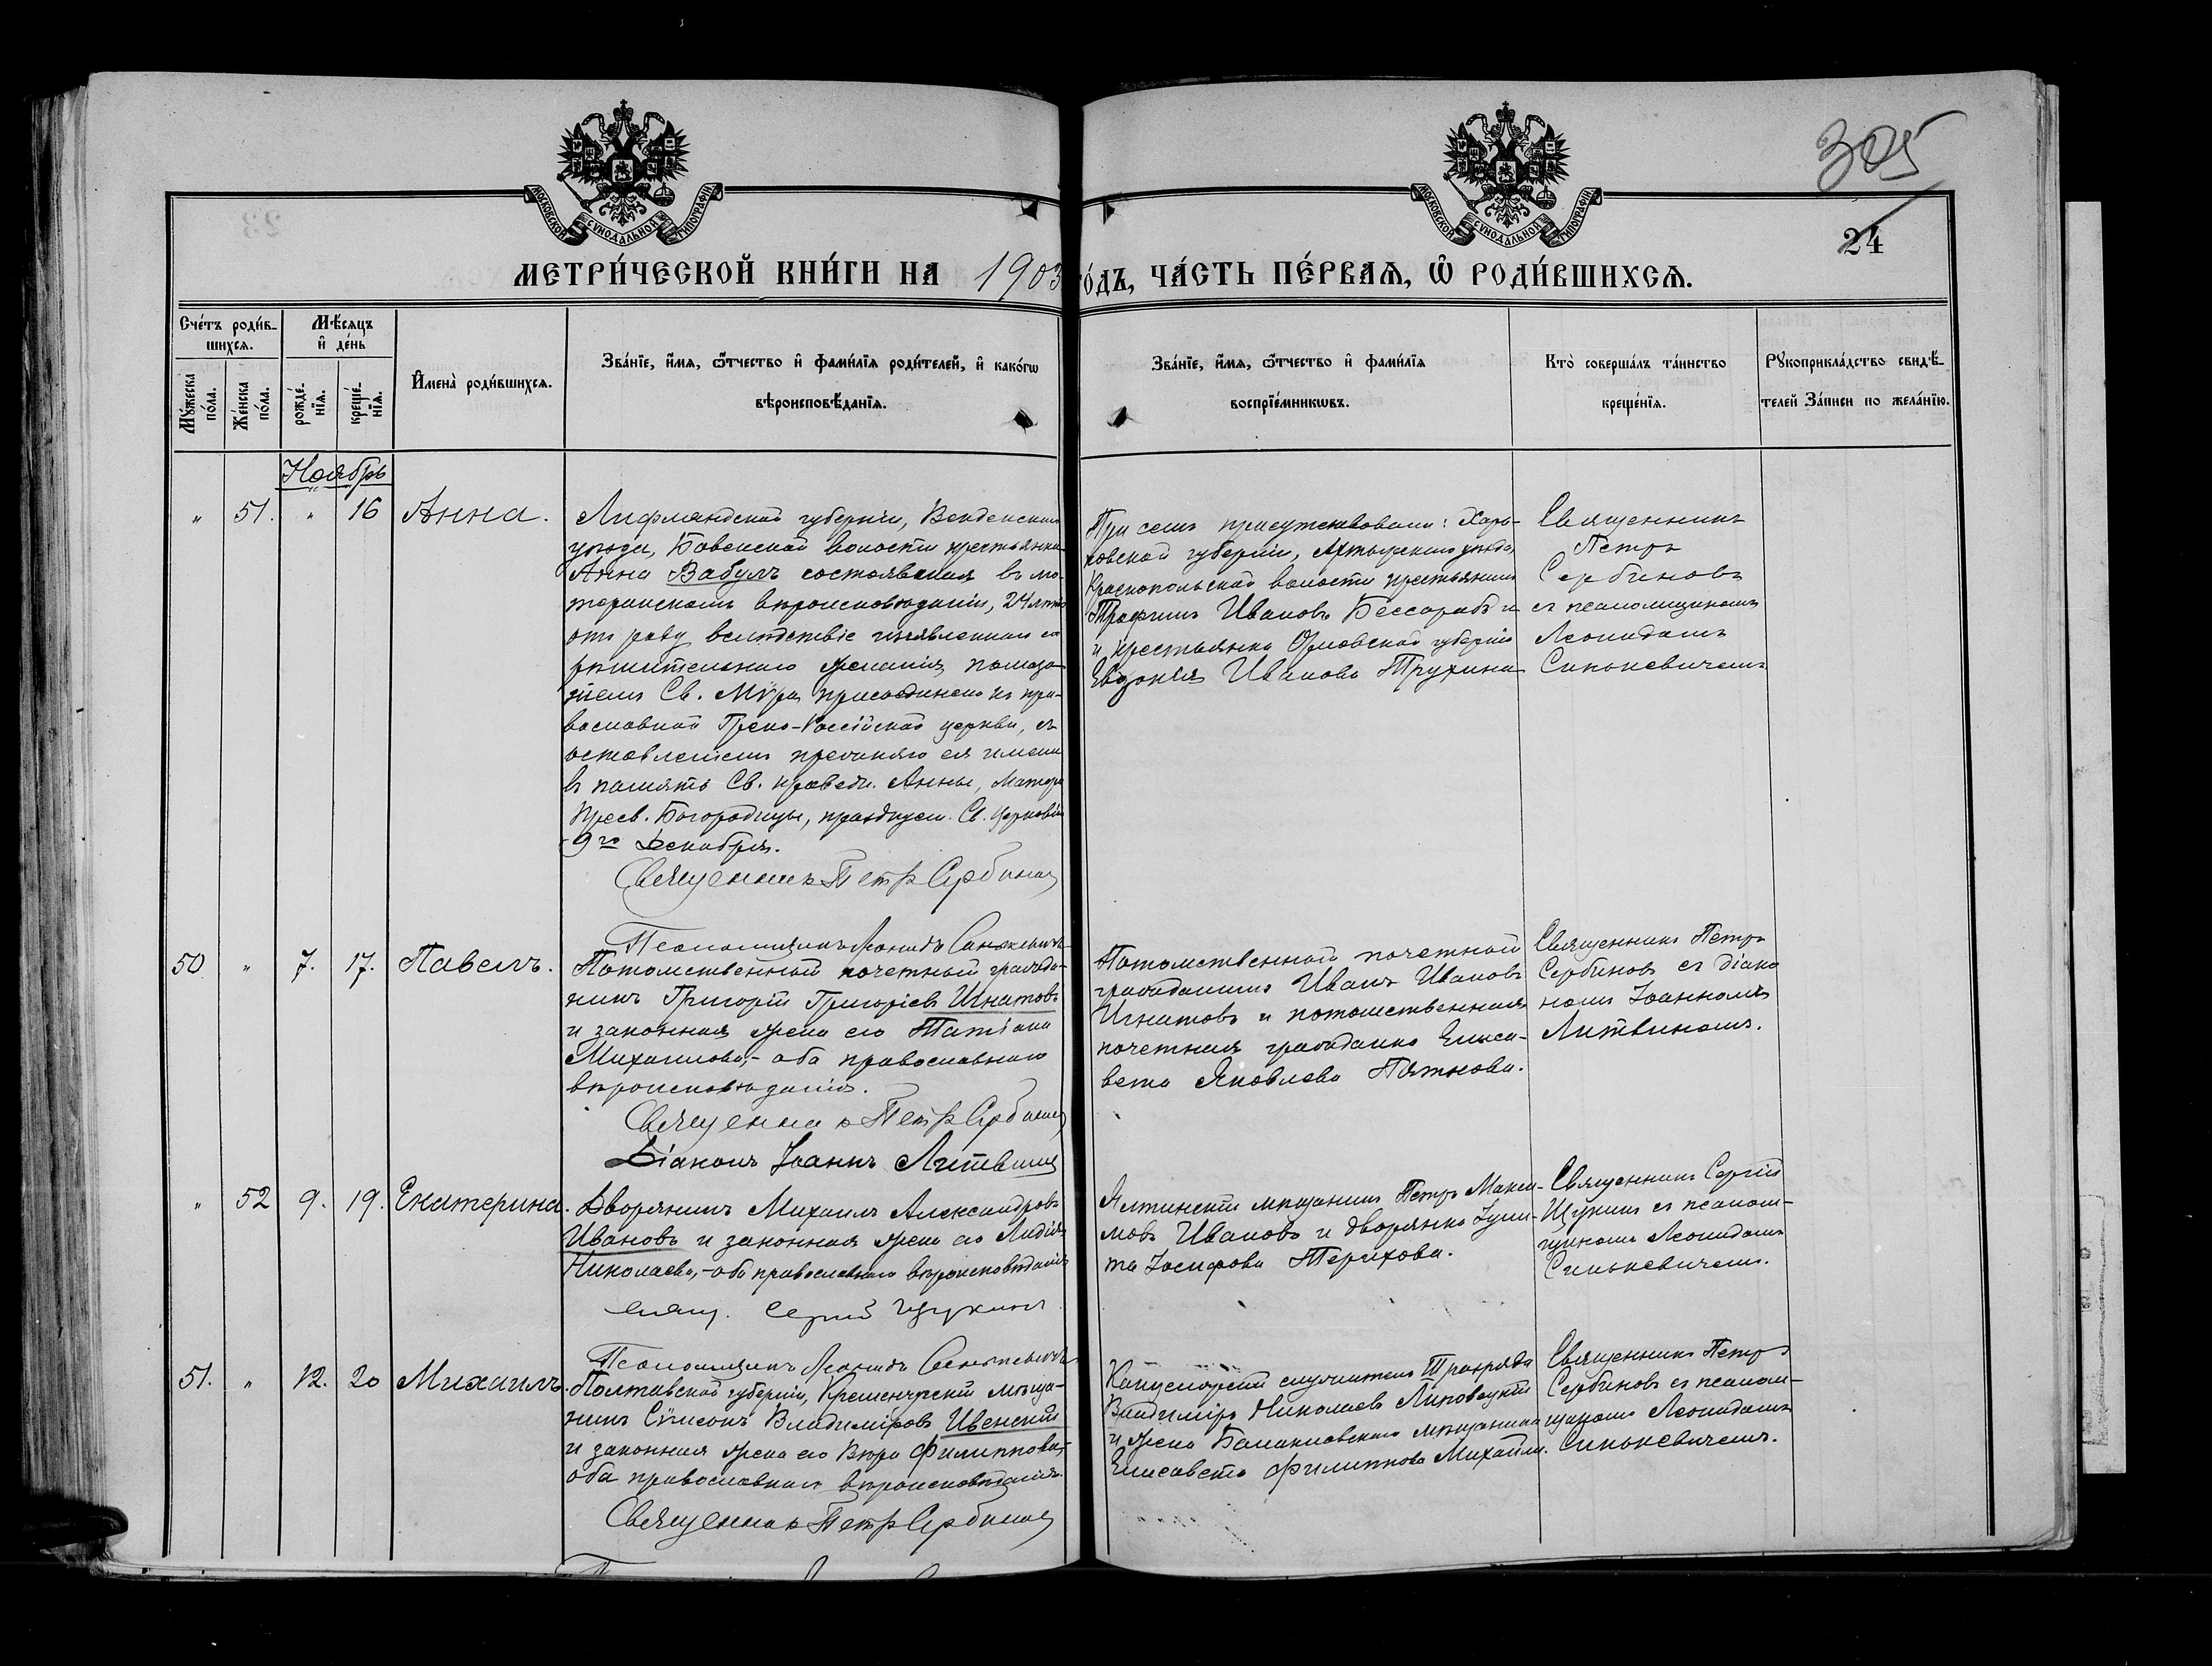 305
24
МОСКОВСКОЙ СѴНОДАЛЬНОЙ ТИПОГРАФІИ
МОСКОВСКОЙ СѴНОДАЛЬНОЙ ТИПОГРАФІИ
МЕТРИ́ЧЕСКОЙ КНИ́ГИ НА 1903
ГО́ДЪ, ЧА́СТЬ ПЕ́РВАЯ, Ѡ҆ РОДИ́ВШИХСЯ.
Сче́тъ роди́в-
шихся.
Мꙋ́жеска по́ла.
Же́нска по́ла.
Мѣ́сяцъ
и҆ де́нь
рожде́-
нїя.
креще́-
нїя.
И҆мена̀ роди́вшихся.
Зва́нїе, и҆́мя, ѻ҆́тчество и҆ фами́лїя роди́телей, и҆ како́гѡ
вѣроисповѣ́данїя.
Зва́нїе, и҆́мя, ѻ҆́тчество и҆ фами́лїя
воспрїе́мникѡвъ.
Кто̀ соверша́лъ та́инство
креще́нїя.
Рꙋкоприкла́дство свидѣ́-
телей за́писи по жела́нїю.
Ноябрь
" 51. " 16 Анна.
Лифляндской губерніи, Венденскаго
уѣзда, Бовенской волости крестьянка
Анна Вабулъ состоявшая въ лю-
теранскомъ вѣроисповѣданіи, 24 лѣтъ
отъ роду вслѣдствіе изъявленнаго ею
рѣшительнаго желанія, помаза-
ніемъ Св. Мѵра, присоединена къ пра-
вославной Греко-Россійской церкви, съ
оставленіемъ прежняго ея имени
въ память Св. праведн. Анны, Матери
Пресв. Богородицы, празднуем. Св. Церковію
9го Декабря.
Священникъ Петръ Сербиновъ
Псаломщикъ Леонидъ Синькевичъ
При семъ присутствовали: Харь-
ковской губерніи, Ахтырскаго уѣзда,
Краснопольской волости крестьянинъ
Трофимъ Ивановъ Бессарабъ и
и крестьянка Орловской губерніи
Евдокія Иванова Трухина
Священникъ
Петръ
Сербиновъ
съ псаломщикомъ
Леонидомъ
Синькевичемъ
50 " 7. 17. Павелъ.
Потомственный почетный гражда-
нинъ Григорій Григоріевъ Игнатовъ
и законная жена его Татіана
Михаилова,- оба православнаго
вѣроисповѣданія.
Священникъ Петръ Сербиновъ
Діаконъ Іоаннъ Литвинъ
Потомственный почетный
гражданинъ Иванъ Ивановъ
Игнатовъ и потомственная
почетная гражданка Елиса-
вета Яковлева Пятнова.
Священникъ Петръ
Сербиновъ съ діако
номъ Іоанномъ
Литвиномъ.
" 52 9. 19. Екатерина.
Дворянинъ Михаилъ Александровъ
Ивановъ и законная жена его Лидія
Николаева,- оба православнаго вѣроисповѣданія
свящ. Сергій Щукинъ
Псаломщикъ Леонидъ Синькевичъ
Ялтинскій мѣщанинъ Петръ Макси-
мовъ Ивановъ и дворянка Іули-
та Іосифова Терихова.
Священникъ Сергій
Щукинъ съ псалом-
щикомъ Леонидомъ
Синькевичемъ.
51. " 12. 20 Михаилъ.
Полтавской губерніи, Кременчугскій мѣща-
нинъ Сѵмеонъ Владиміровъ Ивенскій
и законная жена его Вѣра Филиппова,-
оба православнаго вѣроисповѣданія.
Священникъ Петръ Сербиновъ
Канцелярскій служитель III разряда
Владиміръ Николаевъ Липовецкій
и жена Балаклавскаго мѣщанина
Елисавета Филиппова Михайли.
Священникъ Петръ
Сербиновъ съ псалом-
щикомъ Леонидомъ
Синькевичемъ.